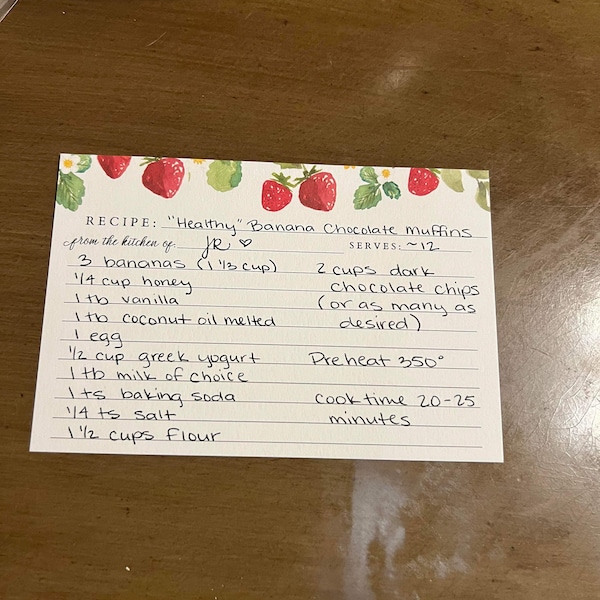 RECIPE: "Healthy" Banana Chocolate muffins
from the kitchen of: JR ♡ SERVES: ~12
3 bananas (1 1/3 cup)
1/4 cup honey
1 tb vanilla
1 tb coconut oil melted
1 egg
1/2 cup greek yogurt
1 tb milk of choice
1 ts baking soda
1/4 ts salt
1 1/2 cups flour
2 cups dark
chocolate chips
(or as many as
desired)
Preheat 350°
cook time 20-25
minutes